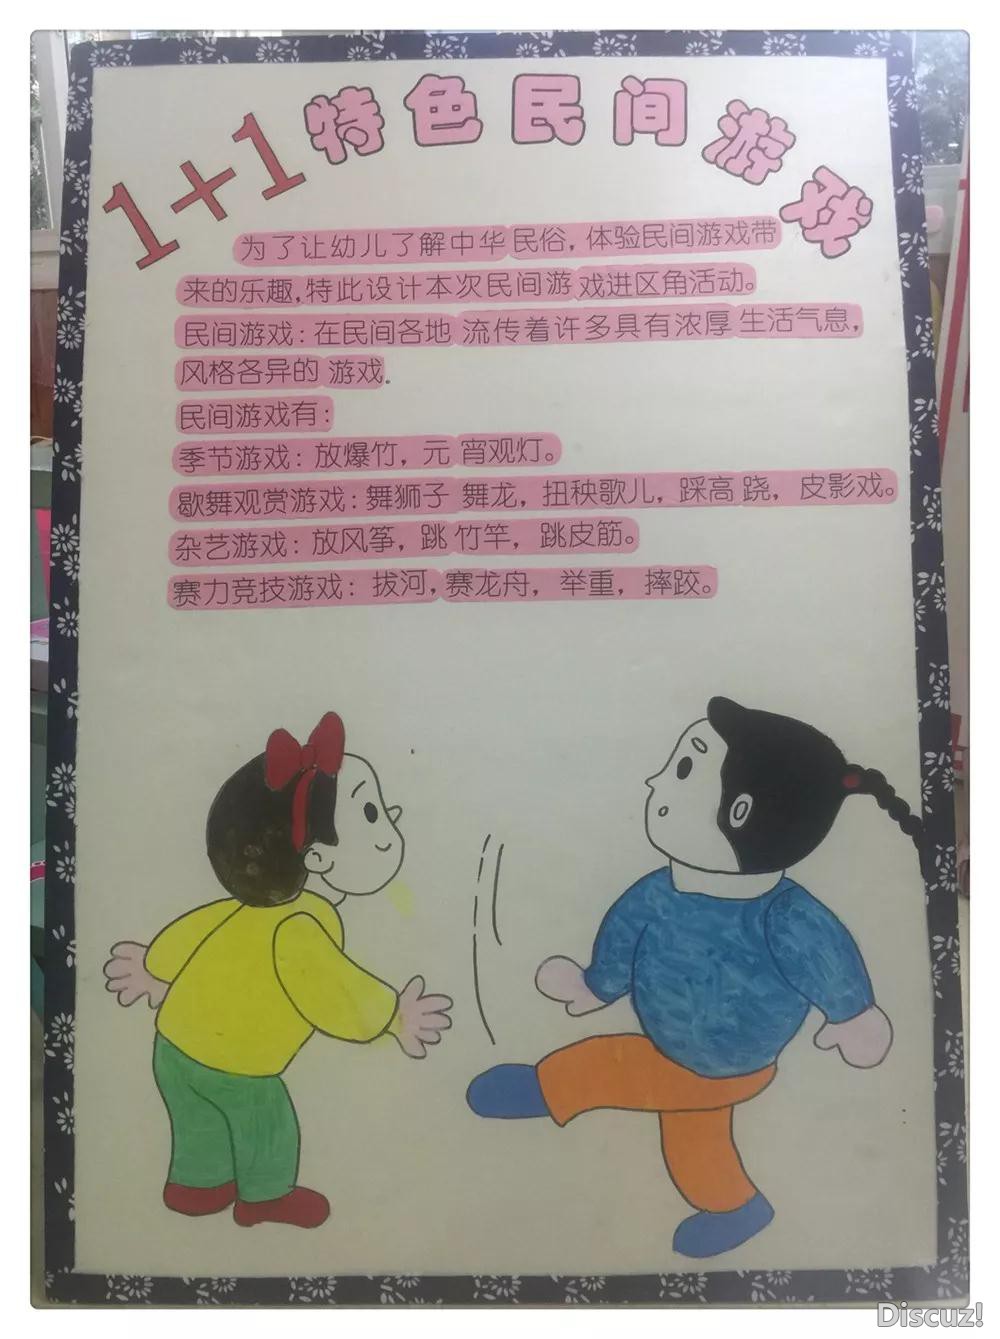 1+1特色民间游戏
为了让幼儿了解中华民俗，体验民间游戏带
来的乐趣，特此设计本次民间游戏进区角活动。
民间游戏：在民间各地流传着许多具有浓厚生活气息，
风格各异的游戏.
民间游戏有：
季节游戏：放爆竹，元宵观灯。
歇舞观赏游戏：舞狮子 舞龙，扭秧歌儿，踩高跷，皮影戏。
杂艺游戏：放风筝，跳竹竿，跳皮筋。
赛力竞技游戏：拔河，赛龙舟，举重，摔跤。
Discuz!